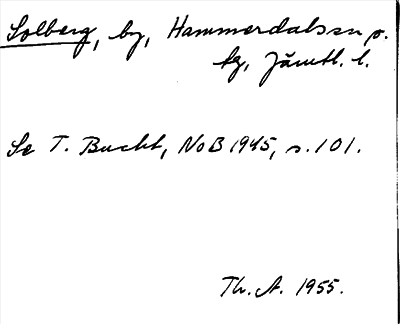 Solberg, by, Hammerdals sn o.
tg, Jämtl. l.
Se T. Bucht, NoB 1945, s. 101.
Th. A. 1955.